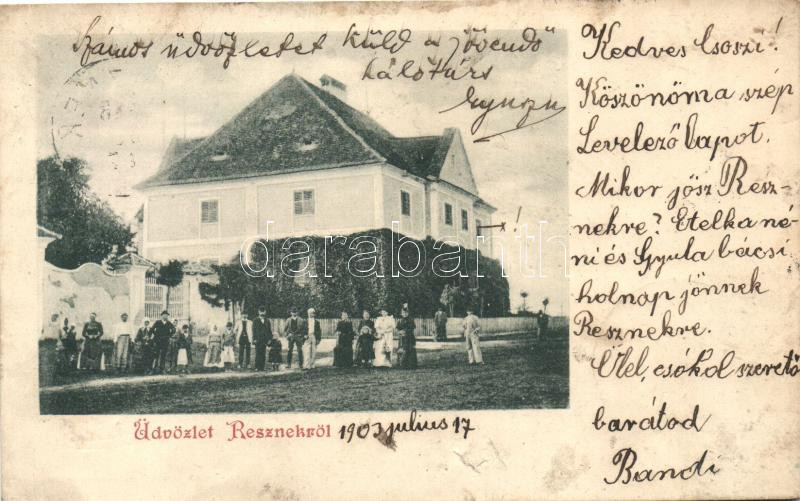 Számos üdvözletet küld a jövendő
hálótárs
Kedves Csoszi!
Köszönöma szép
Levelező lapot.
Mikor jösz Resz-
nekre? Etelka né-
ni és Gyula bácsi
holnap jönnek
Resznekre.
Ölel, csókol szerető
barátod
Bandi
x!
darabanth.com
Üdvözlet Resznekről 1903 julius 17